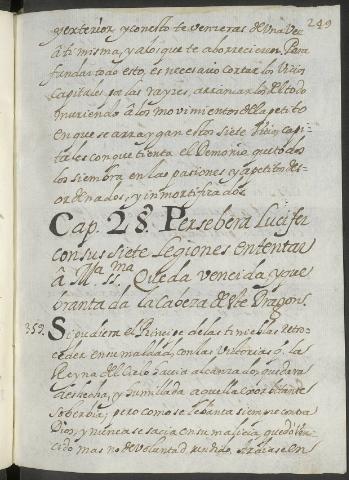 249
y exterior, y con esto te venzeras de una vez
á ti misma, y a los que te aborrecieren. Para
fundar todo esto, es necesario cortar los Vicios
Capitales por las rayzes, arrancarlos del todo
muriendo á los movimientos del apetito
en que se arraygan estos siete Vicios capi-
tales con que tienta el Demonio que todos
los siembra en las pasiones y apetitos des-
ordenados, y inmortificados
Cap. 28. Persebera Lucifer
con sus siete Legiones en tentar
á Mª SSma Queda vencida, y que
brantada la Caveza de este Dragon.
352. Si pudiera el Principe de las tinieblas Retro-
ceder en su maldad, con las Victorias q. la
Reyna del Cielo havia alcanzado, quedara
deshecha, y humillada aquella exorbitante
Soberbia; pero como se lebanta siempre contra
Dios, y nunca se sacia en su malicia, quedó Ven-
cido mas no de voluntad rendido.